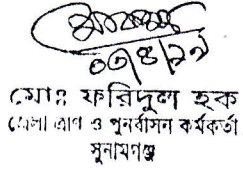 মোঃ ফরিদুল হক
জেলা ত্রাণ ও পুনর্বাসন কর্মকর্তা
সুনামগঞ্জ